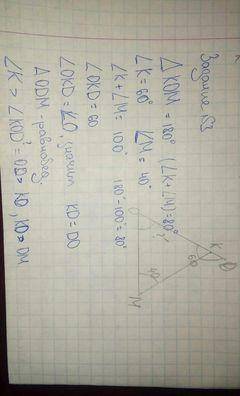 Задание №3
△ КОМ = 180° (∠K+∠M)=80°
∠K = 60° ∠M = 40°
∠K+∠M = 100° 180-100=80°
∠OKD = 60
∠OKD = ∠O, значит KD=DO
△ODM равнобед,
∠K > ∠KOD
K
D
60
O
40
M